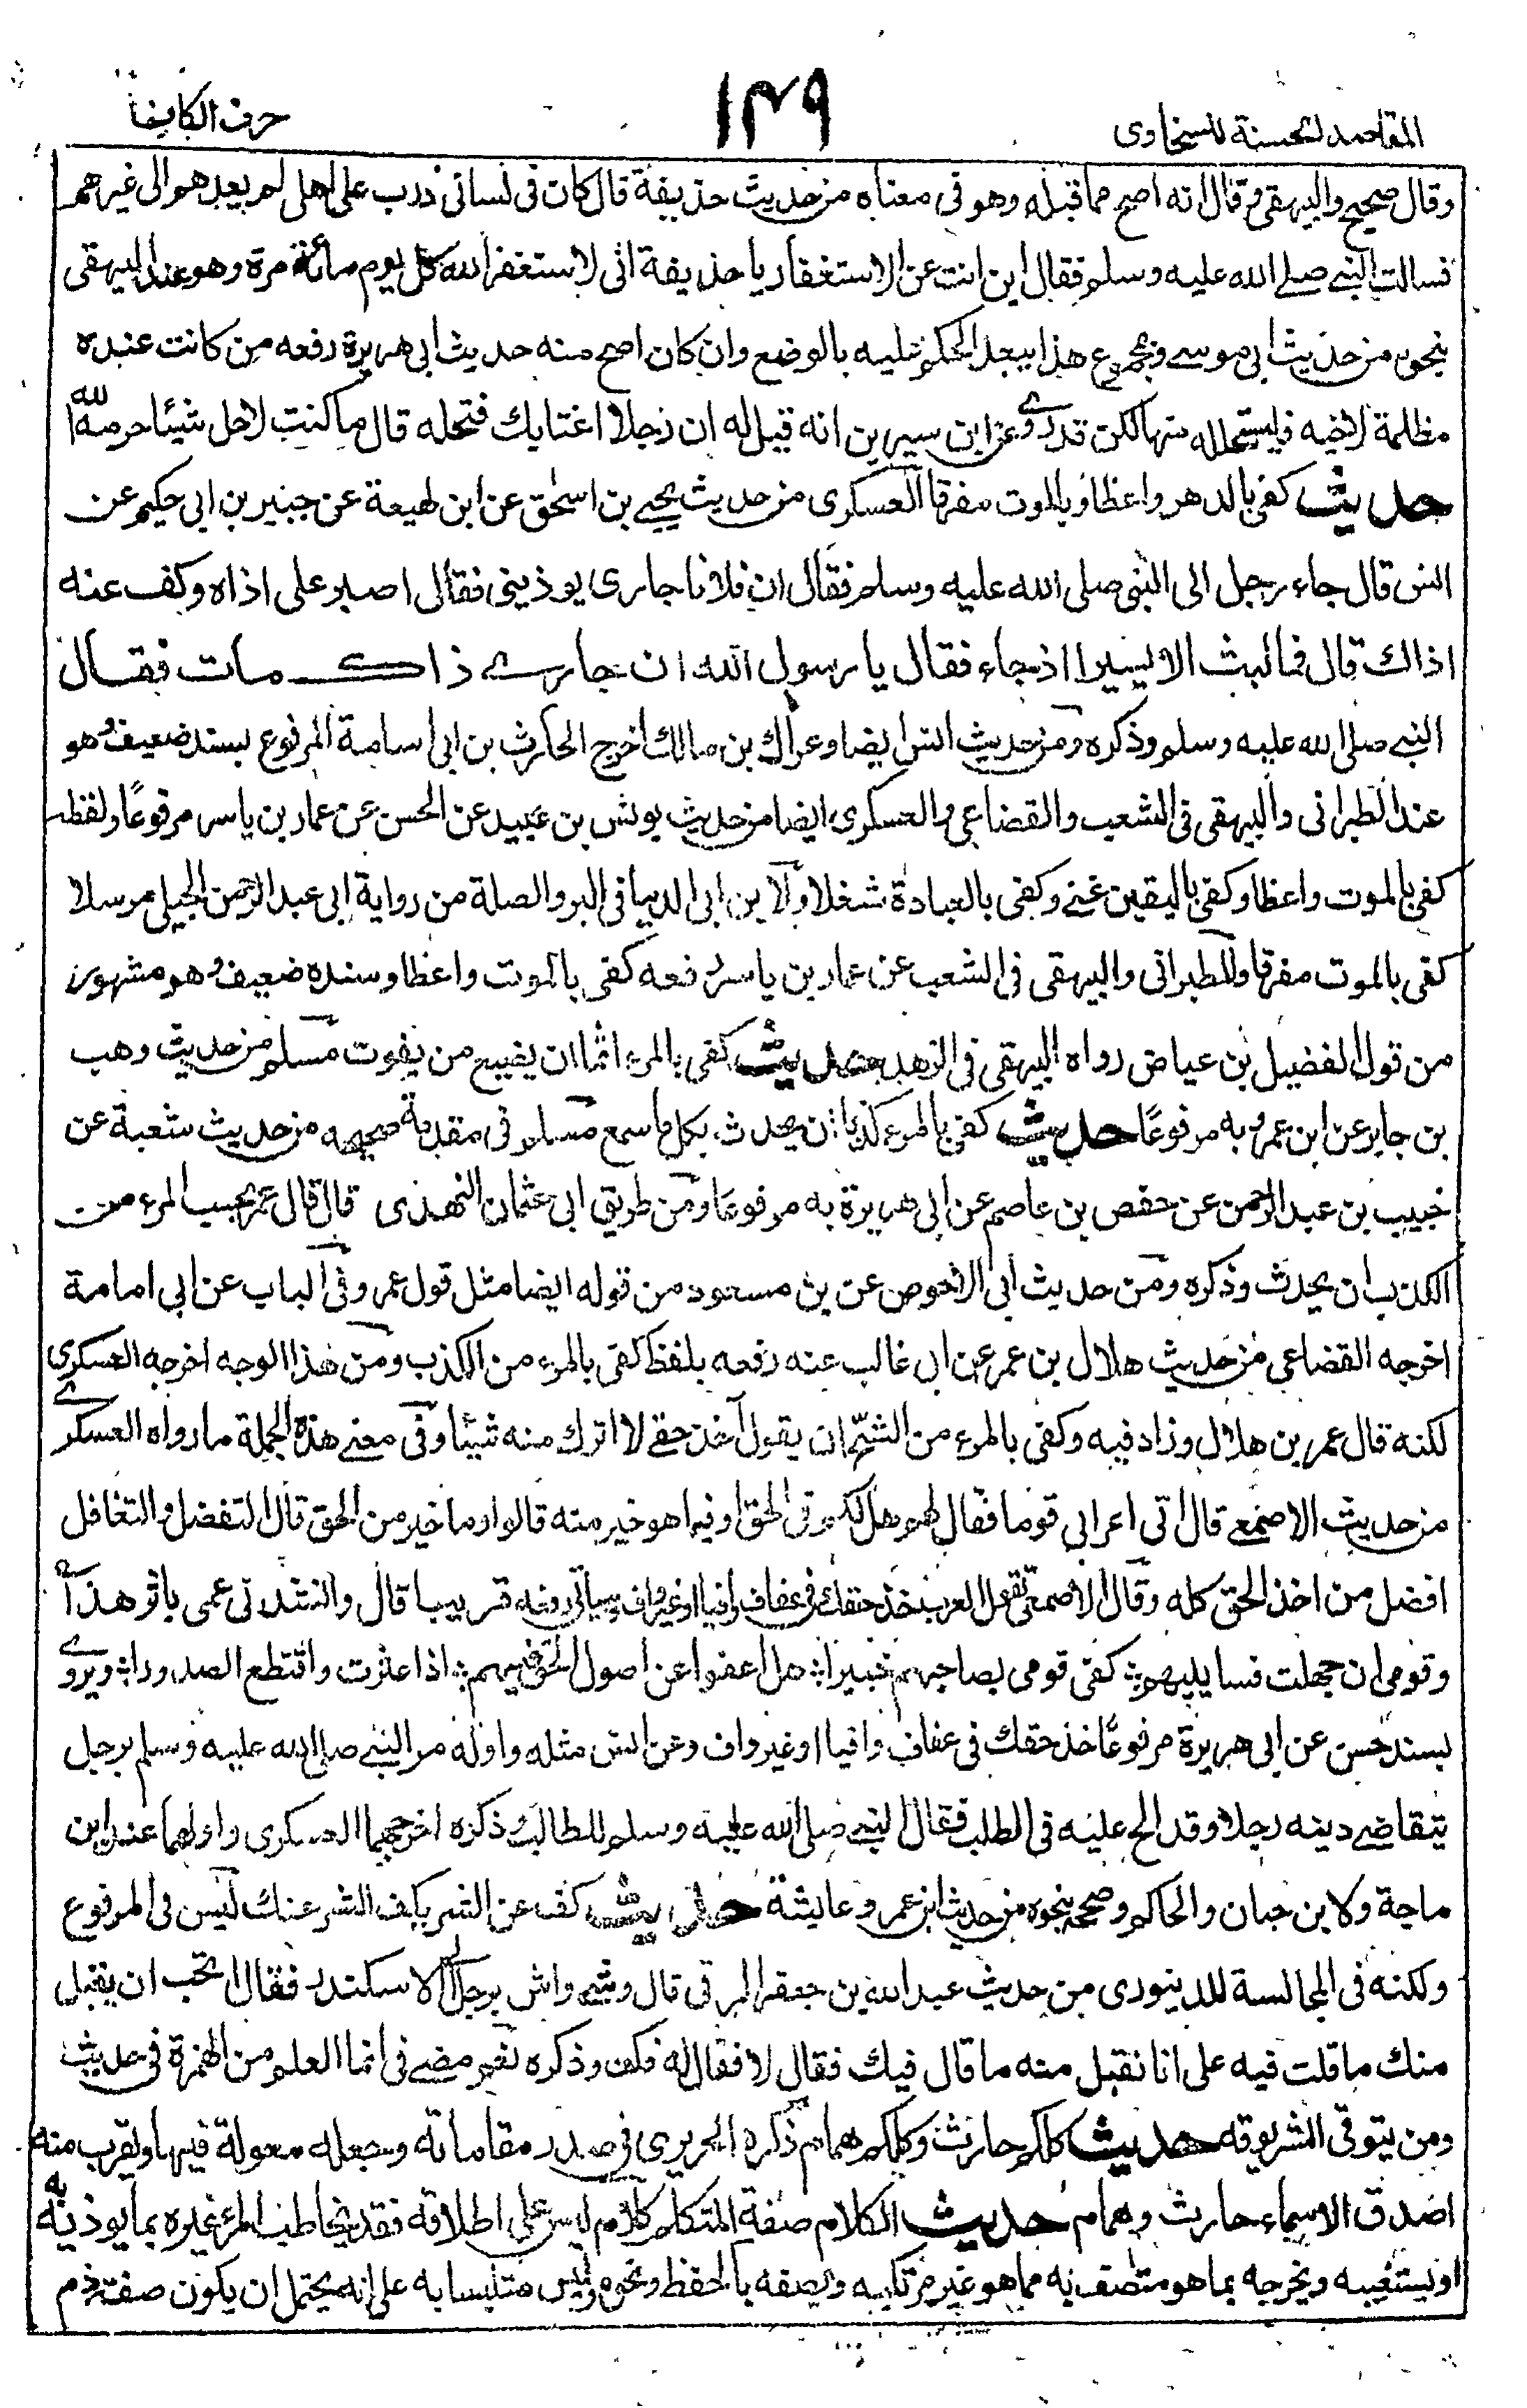 المقاصد الحسنة للسخاوى
١٤٩
حرف الكاف
وقال صحيح والبيهقى وقال انه اصح مما قبله وهو فى معناه من حديث حذيفة قال كان فى لسانى ذرب على اهلى لم يعدهو الى غيرهم
فسالت النبى صلى الله عليه وسلم فقال اين انت عن الاستغفار يا حذيفة انى لاستغفر الله كل يوم مائة مرة وهو عند البيهقى
بنحوه من حديث ابى موسى ومجموع هذا يبعد الحكم عليه بالوضع وان كان اصح منه حديث ابى هريرة رفعه من كانت عنده
مظلمة لاخيه فليستحلله منها لكن قد روى عن ابن سيرين انه قيل له ان رجلا اغتابك فتحله قال ما كنت لاحل شيئا حرمه الله
حديث كفى بالدهر واعظا وبالموت مفرقا العسكرى من حديث يحيى بن اسحق عن ابن لهيعة عن جنير بن ابى حكيم عن
انس قال جاء رجل الى النبى صلى الله عليه وسلم فقال ان فلانا جارى يوذينى فقال اصبر على اذاه وكف عنه
اذاك قال فما لبث الا يسيرا اذ جاء فقال يا رسول الله ان جارى ذاك مات فقال
النبى صلى الله عليه وسلم وذكره ومن حديث انس ايضا وعراك بن مالك اخرج الحارث بن ابى اسامة المرفوع بسند ضعيف وهو
عند الطبرانى والبيهقى فى الشعب والقضاعى والعسكرى ايضا من حديث يونس بن عبيد عن الحسن عن عمار بن ياسر مرفوعًا ولفظه
كفى بالموت واعظا وكفى باليقين غنى وكفى بالعبادة شغلا ولابن ابى الدنيا فى البر والصلة من رواية ابى عبد الرحمن الحبلى مرسلا
كفى بالموت مفرقا وللطبرانى والبيهقى فى الشعب عن عمار بن ياسر رفعه كفى بالموت واعظا وسنده ضعيف وهو مشهور
من قول الفضيل بن عياض رواه البيهقى فى الزهد حديث كفى بالمرء اثما ان يضيع من يقوت مسلم من حديث وهب
بن جابر عن ابن عمرو به مرفوعًا حديث كفى بالمرء كذبا ان يحدث بكل ما سمع مسلم فى مقدمة صحيحه من حديث شعبة عن
خبيب بن عبد الرحمن عن حفص بن عاصم عن ابى هريرة به مرفوعا ومن طريق ابى عثمان النهدى قال قال عمر بحسب المرء من
الكذب ان يحدث وذكره ومن حديث ابى الاحوص عن بن مسعود من قوله ايضا مثل قول عمر وفى الباب عن ابى امامة
اخرجه القضاعى من حديث هلال بن عمر عن ابى غالب عنه رفعه بلفظ كفى بالمرء من الكذب ومن هذا الوجه اخرجه العسكرى
لكنه قال عمر بن هلال وزاد فيه وكفى بالمرء من الشح ان يقول آخذ حقى لا اترك منه شيئا وفى معنى هذه الجملة ما رواه العسكرى
من حديث الاصمعى قال اتى اعرابى قوما فقال لهم هل لكم فى الحق او فيما هو خير منه قالوا وما خير من الحق قال التفضل والتغافل
افضل من اخذ الحق كله وقال الاصمعى تقول العرب خذ حقك فى عفاف وافيا او غير واف وسيأتى رفعه قريبا قال وانشدنى عمى باثر هذا
وقومى ان جهلت فسايليهم كفى قومى بصاحبهم خبيرا هل اعفوا عن اصول الحق فيهم اذا عثرت واقتطع الصدورا ويروى
بسند حسن عن ابى هريرة مرفوعًا خذ حقك فى عفاف وافيا او غير واف وعن انس مثله واوله مر النبى صلى الله عليه وسلم برجل
يتقاضى دينه رجلا وقد الح عليه فى الطلب فقال النبى صلى الله عليه وسلم للطالب وذكره اخرجهما العسكرى واولهما عند ابن
ماجة ولابن حبان والحاكم وصححه بنحوه من حديث ابن عمر وعايشة حديث كف عن الشر يكف الشر عنك ليس فى المرفوع
ولكنه فى المجالسة للدينورى من حديث عبد الله بن جعفر البرقى قال وشى واش برجل الى الاسكندر فقال اتحب ان يقبل
منك ما قلت فيه على انا نقبل منه ما قال فيك فقال لا فقال له فكف وذكره نعم مضى فى انما العلم من الهمزة فى حديث
ومن يتوقى الشر يوقه حديث كلكم حارث وكلكم همام ذكره الحريرى فى صدر مقاماته وجعله معولة فيها ويقرب منه
اصدق الاسماء حارث وهمام حديث الكلام صفة المتكلم كلام ليس على اطلاقه فقد يخاطب المرء غيره بما يوذيه به
او يستغيبه ويخرجه بما هو متصف به مما هو غير مرتكبه ويصفه بالحفظ ونحوه وليس متلبسا به على انه يحتمل ان يكون صفة ذم